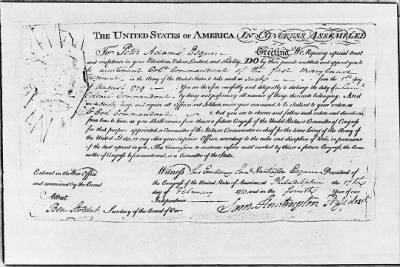 THE UNITED STATES OF AMERICA IN CONGRESS ASSEMBLED
To Peter Adams Esquire Greeting We Reposing especial trust
and confidence in your Patriotism, Valour, Conduct, and Fidelity, DO by these presents constitute and appoint you to
be Lieutenant Col. Commandant of the first Maryland
Regiment in the Army of the United States, to take rank as such from the day
of August 1779 You are therefore carefully and diligently to discharge the duty of
Colonel Commandant by doing and performing all manner of things thereunto belonging. And
we do strictly charge and require all Officers and Soldiers under your command, to be obedient to your orders as
Lt. Col. Commandant And you are to observe and follow such orders and directions
from time to time, as you shall receive from this or a future Congress of the United States, or Committee of Congress
for that purpose appointed, a Committee of the States, or Commander in chief for the time being of the Army of
the United States, or any other your superior Officer, according to the rules and discipline of War, in pursuance
of the trust reposed in you. This Commission to continue in force until revoked by this or a future Congress, the Com-
mittee of Congress before mentioned, or a Committee of the States.
Entered in the War Office
and examined by the Board
Attest
Ben Stoddert Secretary of the Board of War
Witness His Excellency Sam. Huntington Esquire President of
the Congress of the United States of America, at Philadelphia the 17th
day of February 1780, and in the fourth Year of our
Independence
Sam. Huntington President